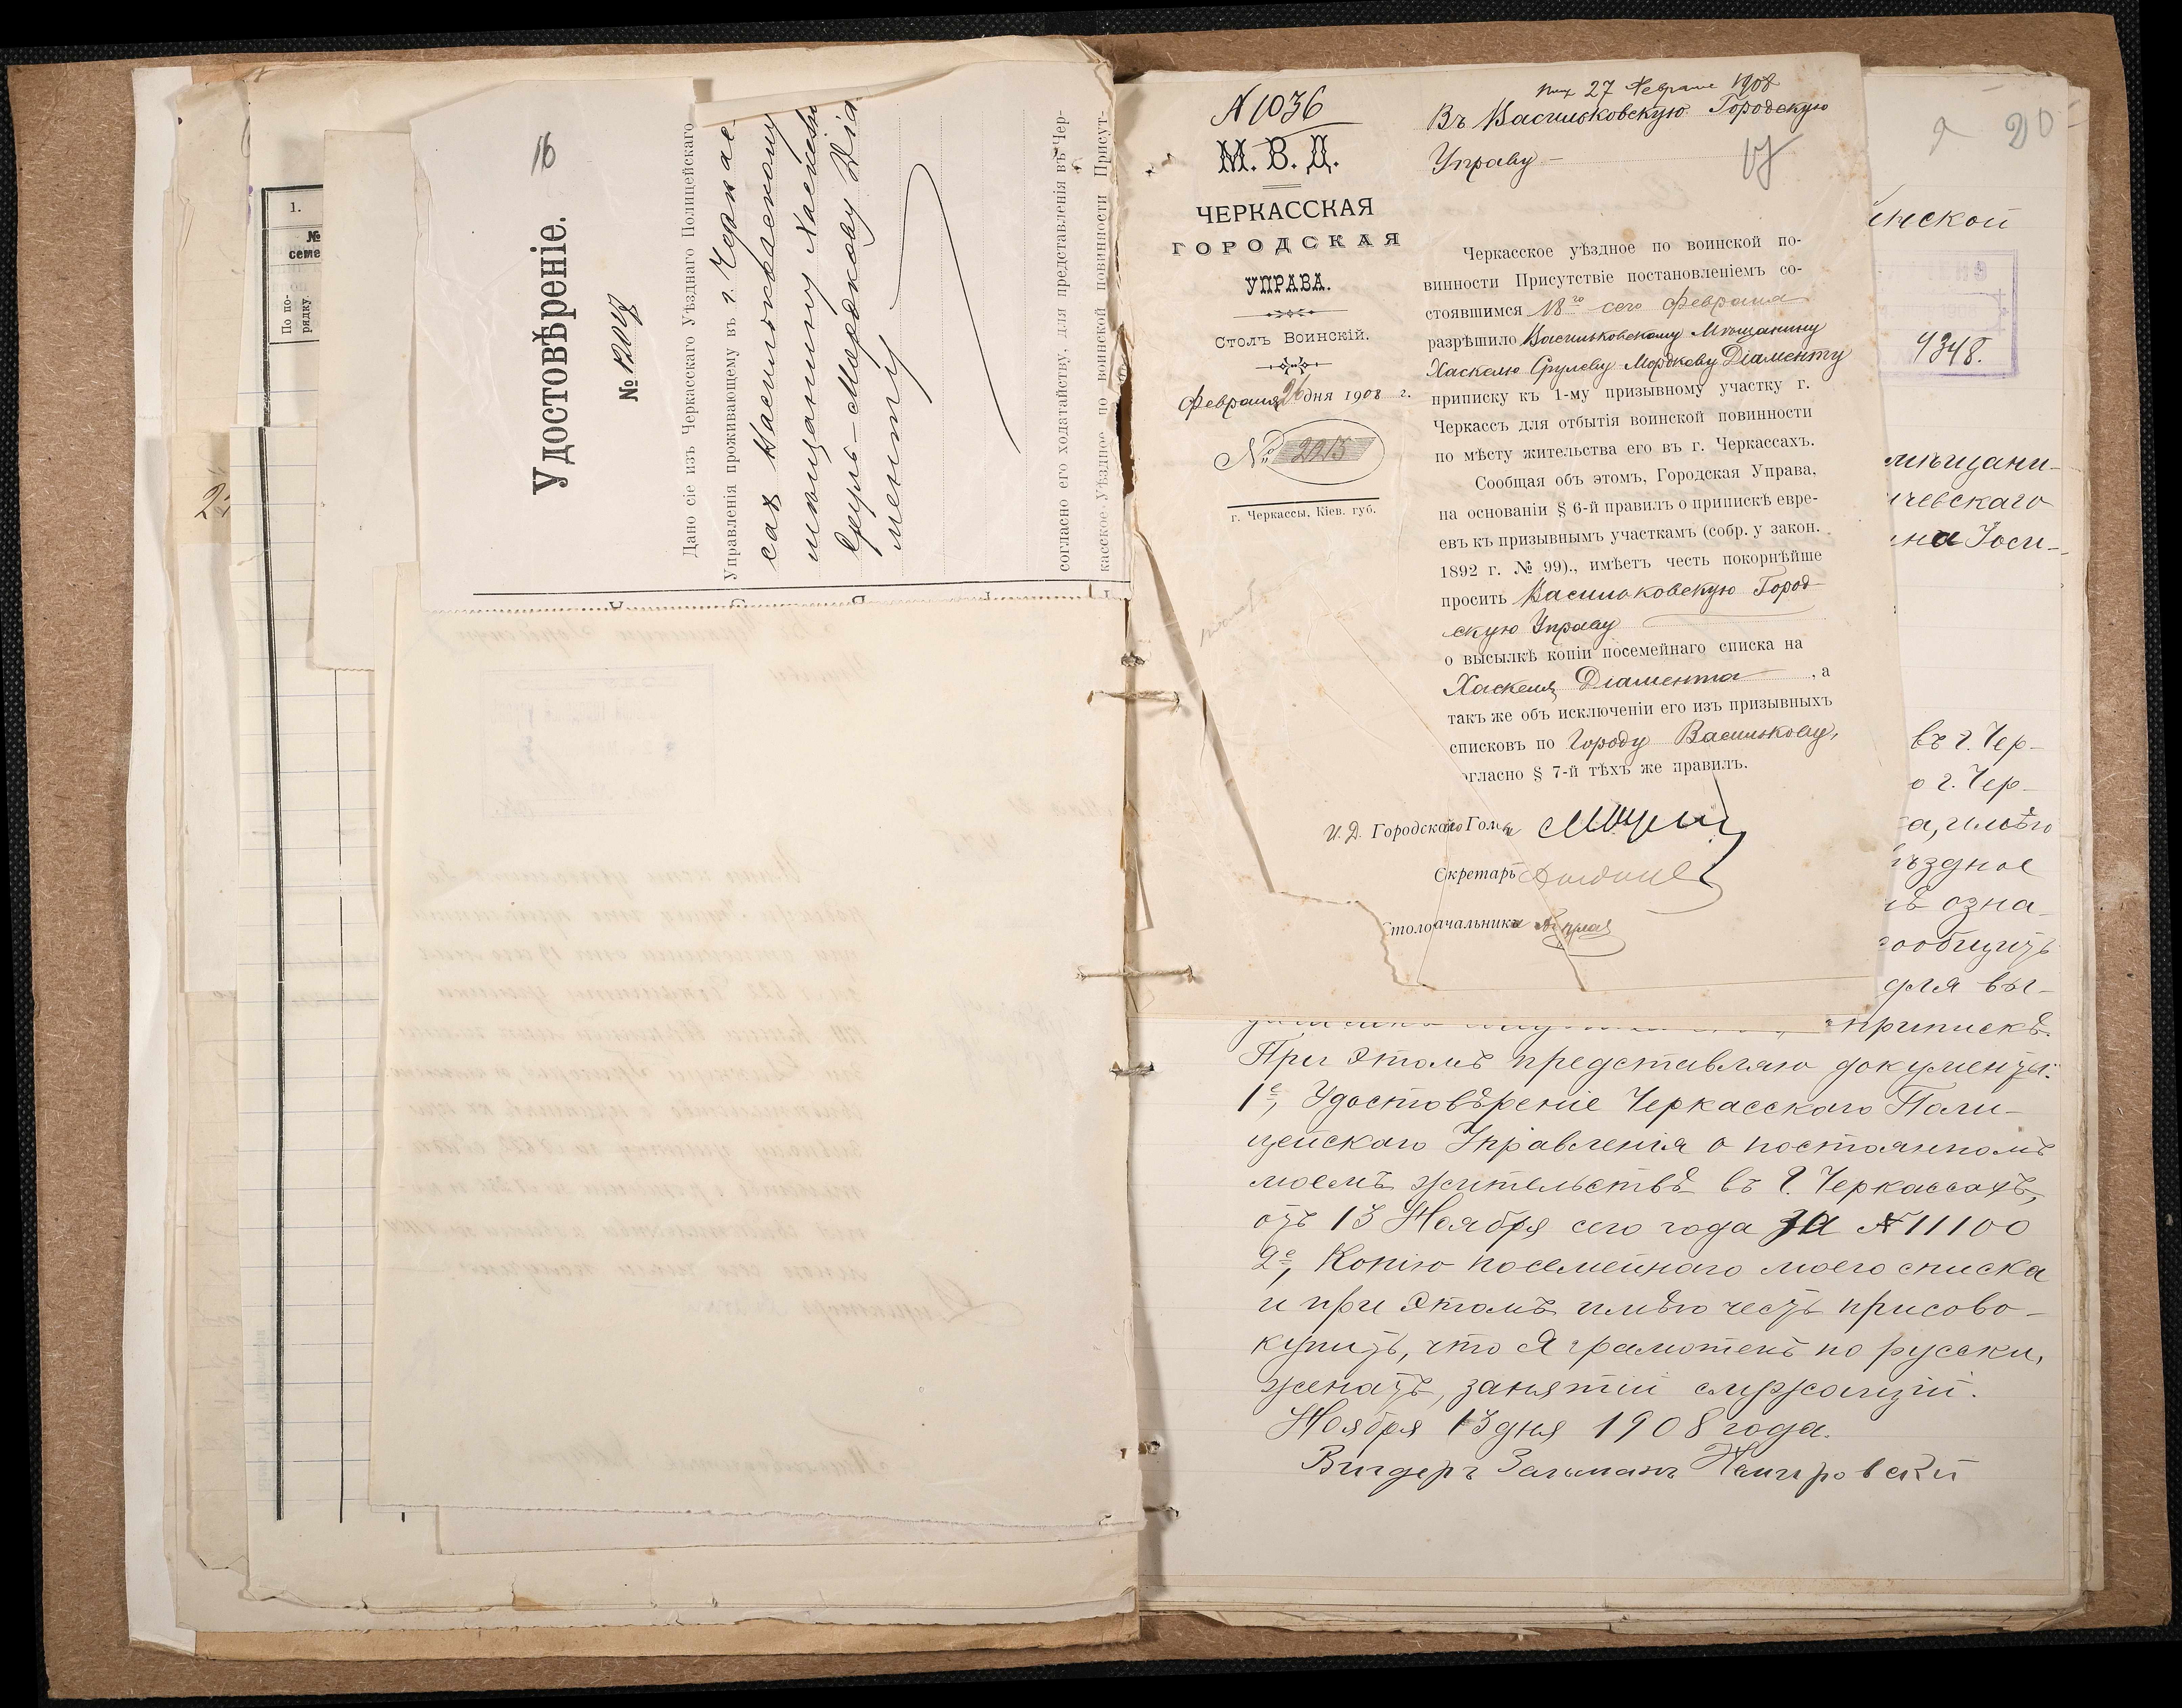 1.
№
семе
По по-
рядку.
16
Удостовѣреніе.
№ 12014
Дано сіе изъ Черкасскаго Уѣзднаго Полицейскаго
Управленія проживающему въ г. Черкас-
сахъ Васильковскому
мѣщанину Хаскелю
Сруль-Мордкову Діа
менту
согласно его ходатайству, для представленія въ Чер-
касское Уѣздное по воинской повинности Присут-
N 1036
М. В. Д.
ЧЕРКАССКАЯ
ГОРОДСКАЯ
УПРАВА.
Столъ Воинскій.
Февраля 26 дня 1908 г.
№ 2215
г. Черкассы, Кіев. губ.
27 Февраля 1908
Въ Васильковскую Городскую
Управу
17
Черкасское уѣздное по воинской по-
винности Присутствіе постановленіемъ со-
стоявшимся 18го сего февраля
разрѣшило Васильковскому Мѣщанину
Хаскелю Срулеву Мордкову Діаменту
приписку къ 1-му призывному участку г.
Черкассъ для отбытія воинской повинности
по мѣсту жительства его въ г. Черкассахъ.
Сообщая объ этомъ, Городская Управа,
на основаніи § 6-й правилъ о припискѣ евре-
евъ къ призывнымъ участкамъ (собр. у закон.
1892 г. № 99)., имѣетъ честь покорнѣйше
просить Васильковскую Город-
скую Управу
о высылкѣ копіи посемейнаго списка на
Хаскеля Діамента, а
такъ же объ исключеніи его изъ призывныхъ
списковъ по Городу Василькову,
огласно § 7-й тѣхъ же правилъ.
И. Д. Городского Голов
Секретарь
Столоначальникъ
20
инской
4348.
мѣщани-
ичевскаго
ина Іоси-
въ г. Чер-
о г. Чер-
а, имѣю
ѣздное
озна-
сообщить
для вы-
припискѣ.
При этомъ представляю документы:
1е, Удостовѣреніе Черкасскаго Поли-
цейскаго Управленія о постоянномъ
моемъ жительствѣ въ г. Черкассахъ,
отъ 13 Ноября сего года за № 11100
2е, Копію посемейнаго моего списка
и при этомъ имѣю честь присово-
купить, что я грамотенъ по русски,
женатъ, занятій служащій.
Ноября 13 дня 1908 года.
Вигдеръ Зальманъ Немировскій